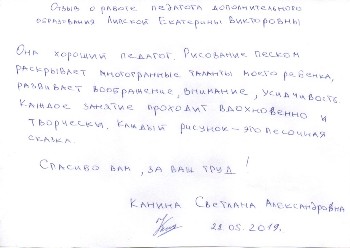 Отзыв о работе педагога дополнительного
образования Липской Екатерины Викторовны
Она хороший педагог. Рисование песком
раскрывает многогранные таланты моего ребёнка,
развивает воображение, внимание, усидчивость.
Каждое занятие проходит вдохновенно и
творчески. Каждый рисунок – это песочная
сказка.
Спасибо вам, за ваш труд!
Канина Светлана Александровна
28.05.2019.